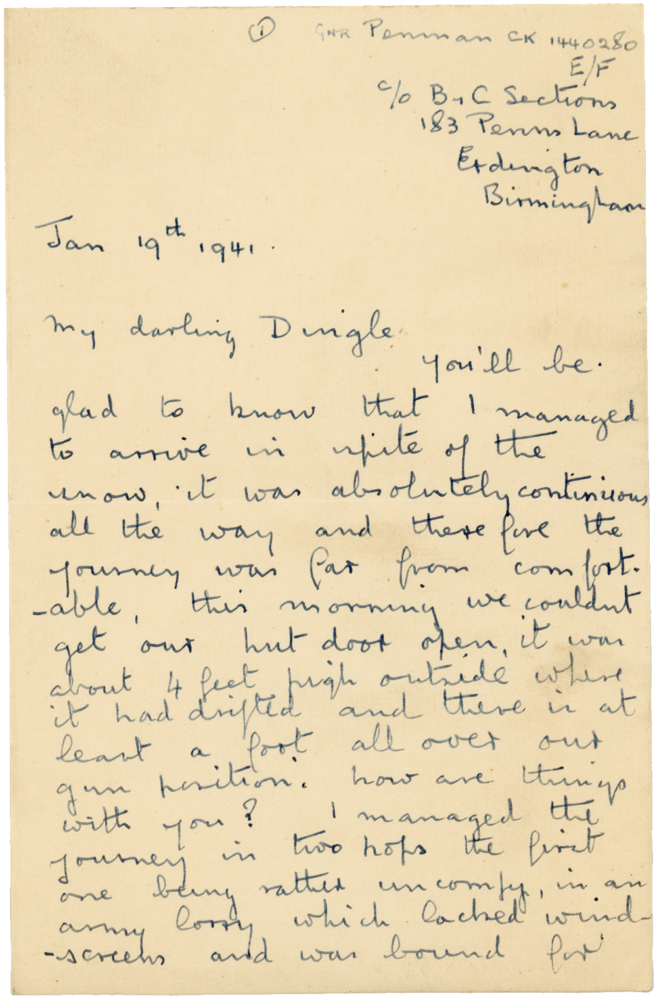 ① GNR Penman CK 1440280
E/F
c/o B & C Sections
183 Penns Lane
Erdington
Birmingham
Jan 19th 1941.
My darling Dingle
You'll be
glad to know that I managed
to arrive in spite of the
snow, it was absolutely continuous
all the way and therefore the
journey was far from comfort-
-able, this morning we couldnt
get our hut door open, it was
about 4 feet high outside where
it had drifted and there is at
least a foot all over our
gun position. how are things
with you? I managed the
journey in two hops the first
one being rather uncomfy, in an
army lorry which lacked wind-
-screens and was bound for